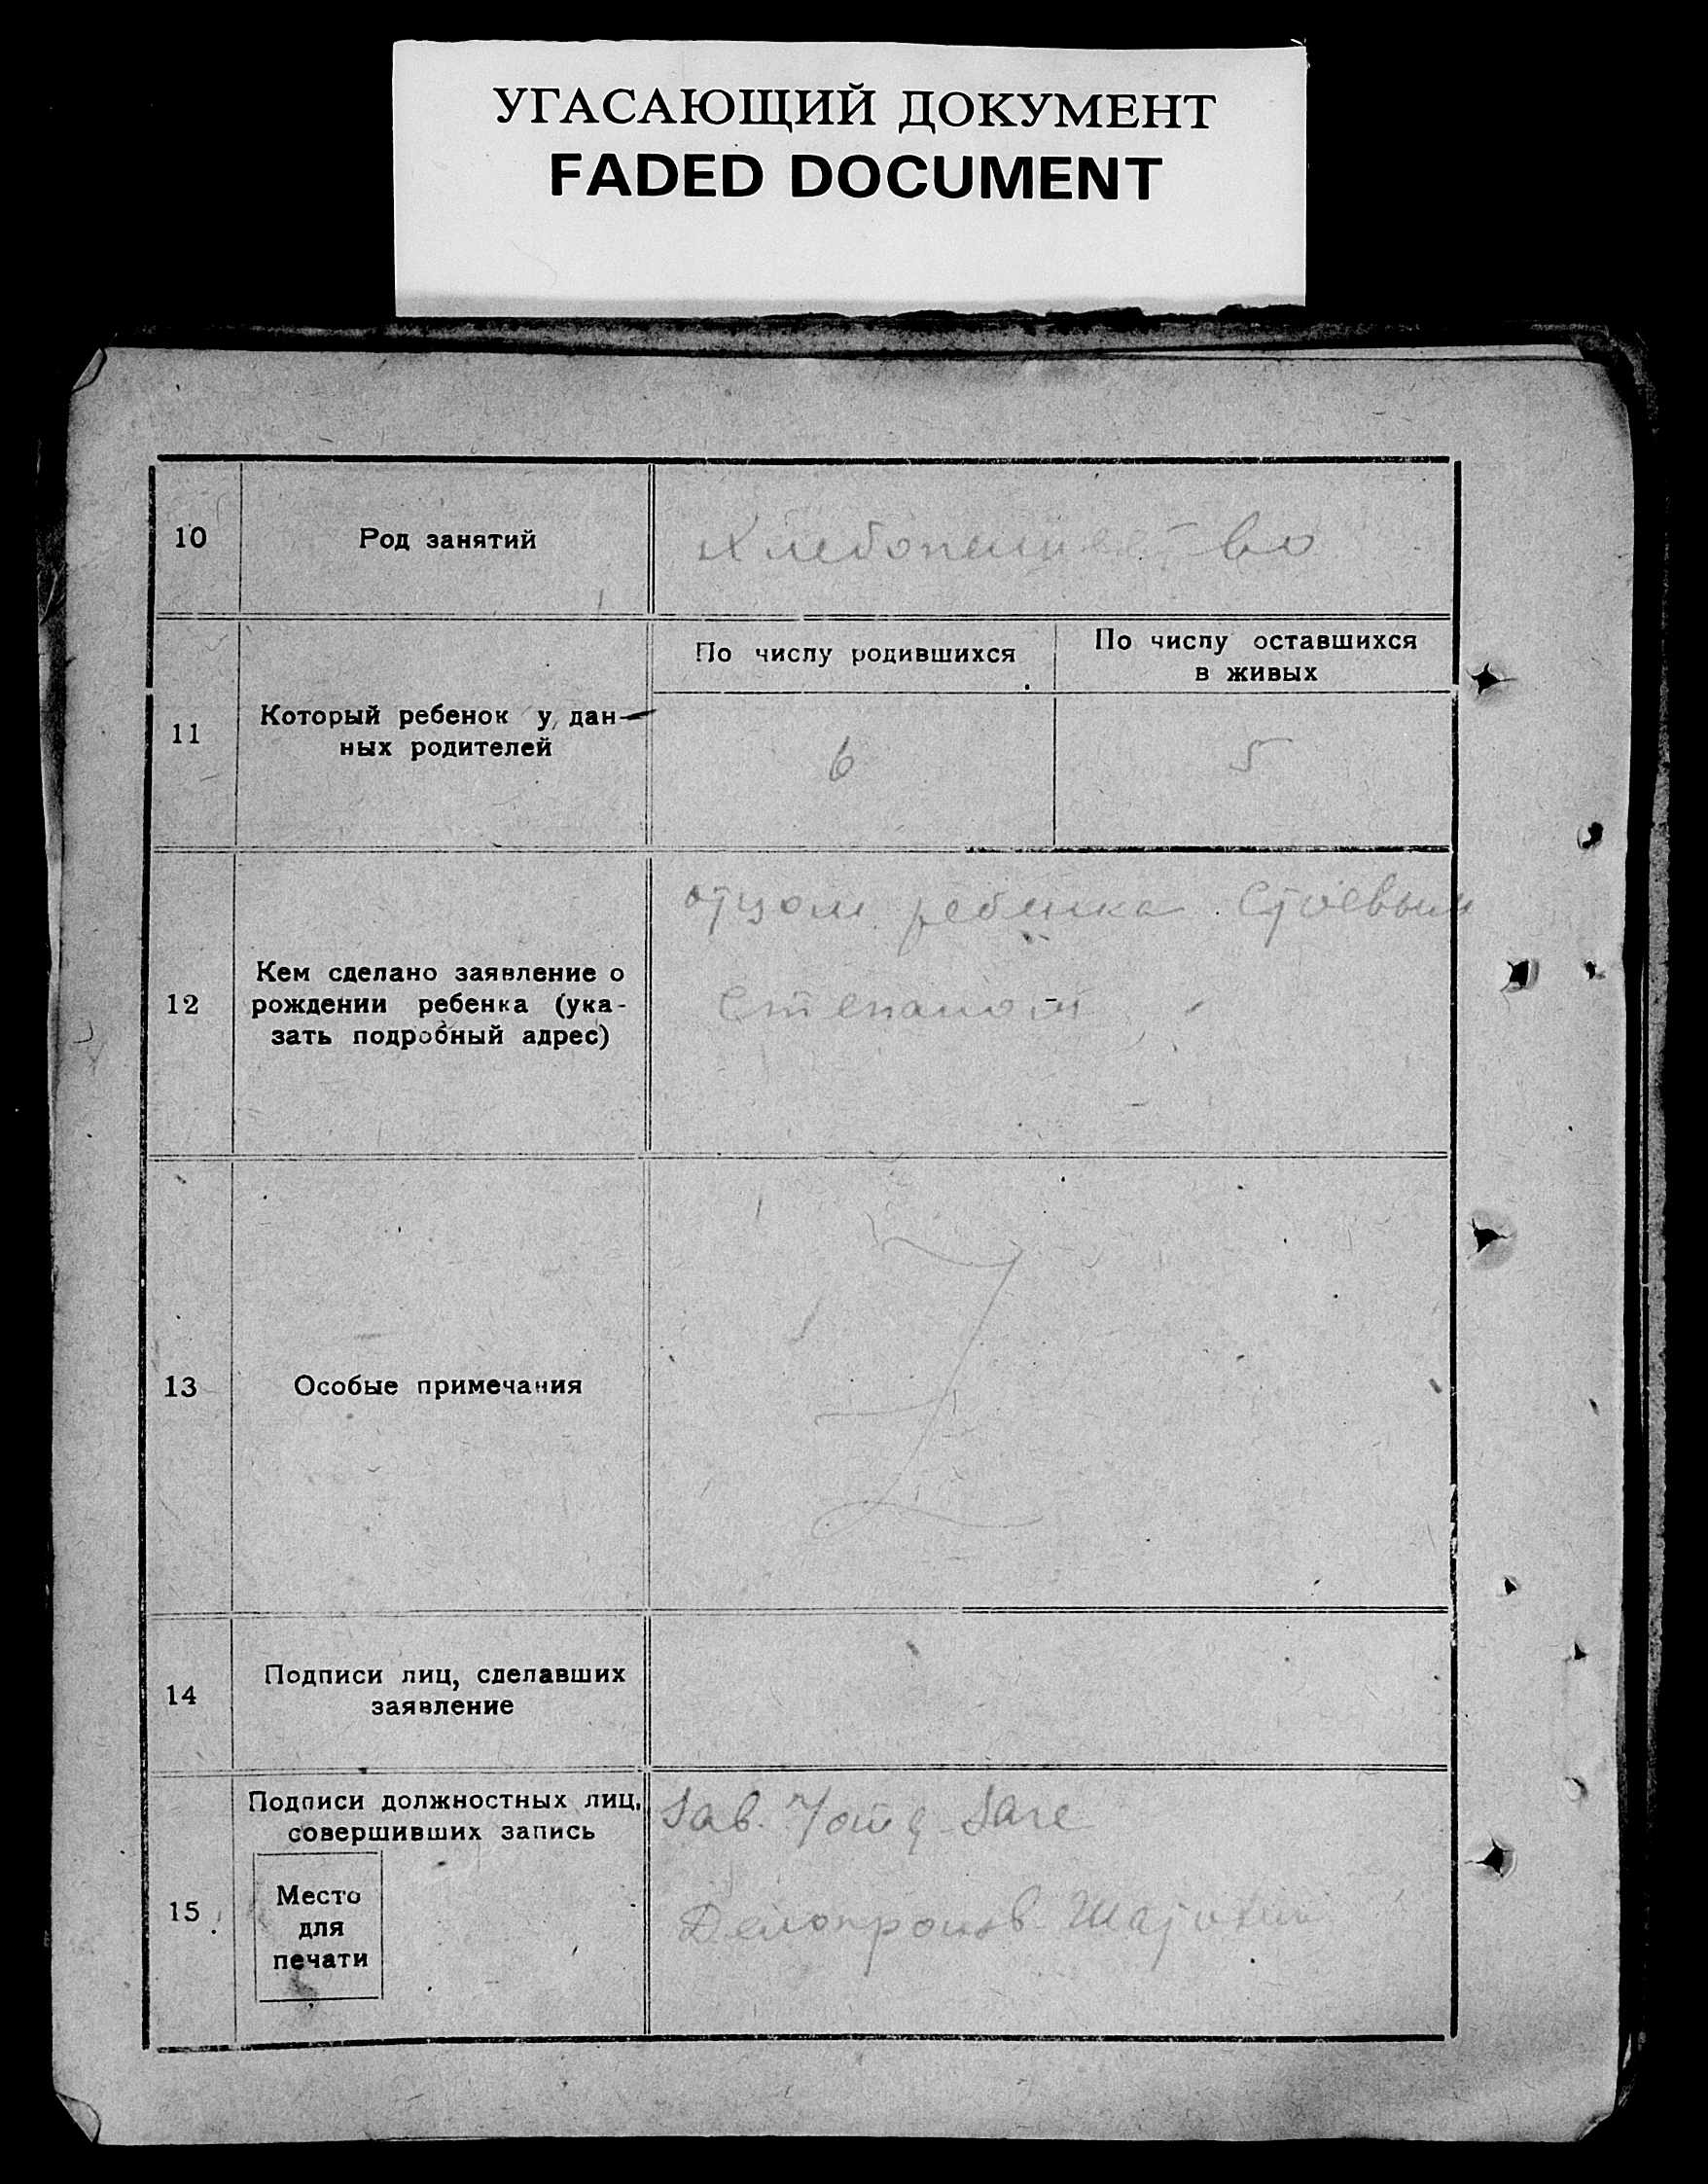 УГАСАЮЩИЙ ДОКУМЕНТ
FADED DOCUMENT
10
Род занятий
Хлебопашество
11
Который ребенок у дан-
ных родителей
По числу родившихся
По числу оставшихся
в живых
6
5
12
Кем сделано заявление о
рождении ребенка (ука-
зать подробный адрес)
отцом ребенка Стоевым
Степаном
13
Особые примечания
14
Подписи лиц, сделавших
заявление
15
Подписи должностных лиц,
совершивших запись
Место
для
печати
Зав.
Делопроизв.